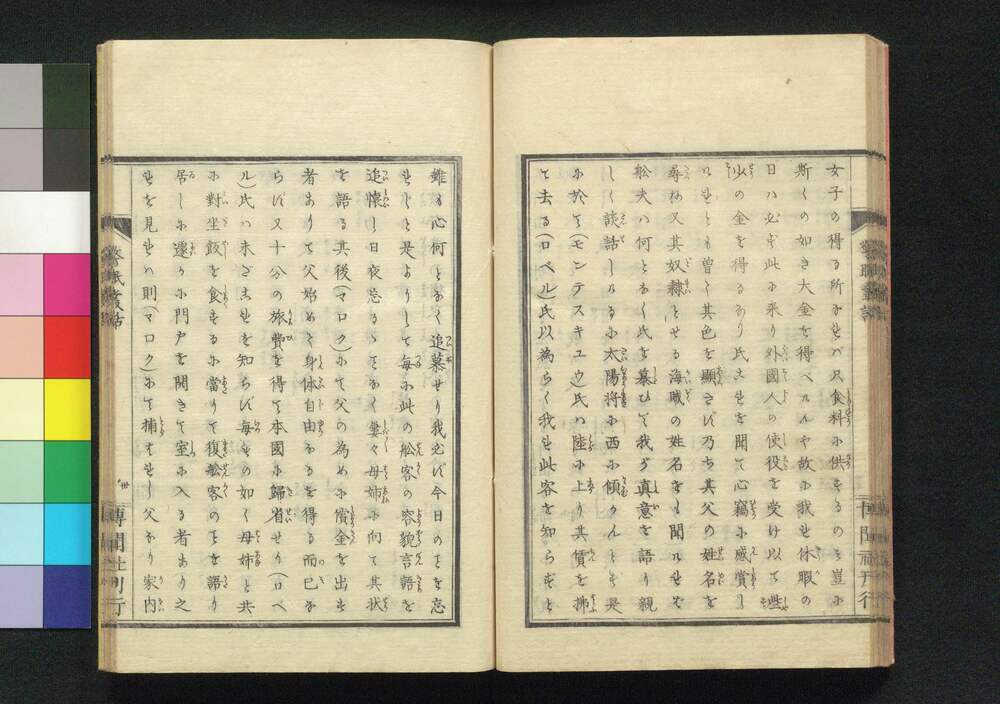 女子の得る所なれバ只食料に供するのミ豈に
斯くの如き大金を得べけんや故に我れ休暇の
日ハ必ず此に来り外國人の使役を受け以て些
少の金を得るなり氏これを聞て心竊に感賞し
けれども曽て其色を顕さず乃ち其父の姓名を
尋ね又其奴隷とせる海賊の姓名をも聞けれど
松夫ハ何となく氏を慕ひて我が真意を語り親
しく談話しけるに太陽将に西に傾かんとす是
に於て(モンテスキュウ)氏ハ陸に上り其價を拂
て去る(ロベル)氏以為らく我れ此客を知らずと
雖も心何となく追慕せり我必ず今日のことを忘
れじと是よりして毎に此の舩客の容貌言語を
追懐し日夜忘るゝことなく屢々母姉に向て其状
を語る其後(マロク)にて父の為めに償金を出す
者ありて父始めて身体自由なるを得る而已な
らず又十分の旅費を得て本國に歸省せり(ロベ
ル)氏ハ未だされを知らず毎もの如く母姉と共
に對坐飯を食するに當り復舩客のことを語り
居しに遽かに門戸を開きて室に入る者あり之
れを見れハ則(マロク)にて捕はれし父なり家内
博聞社刊行